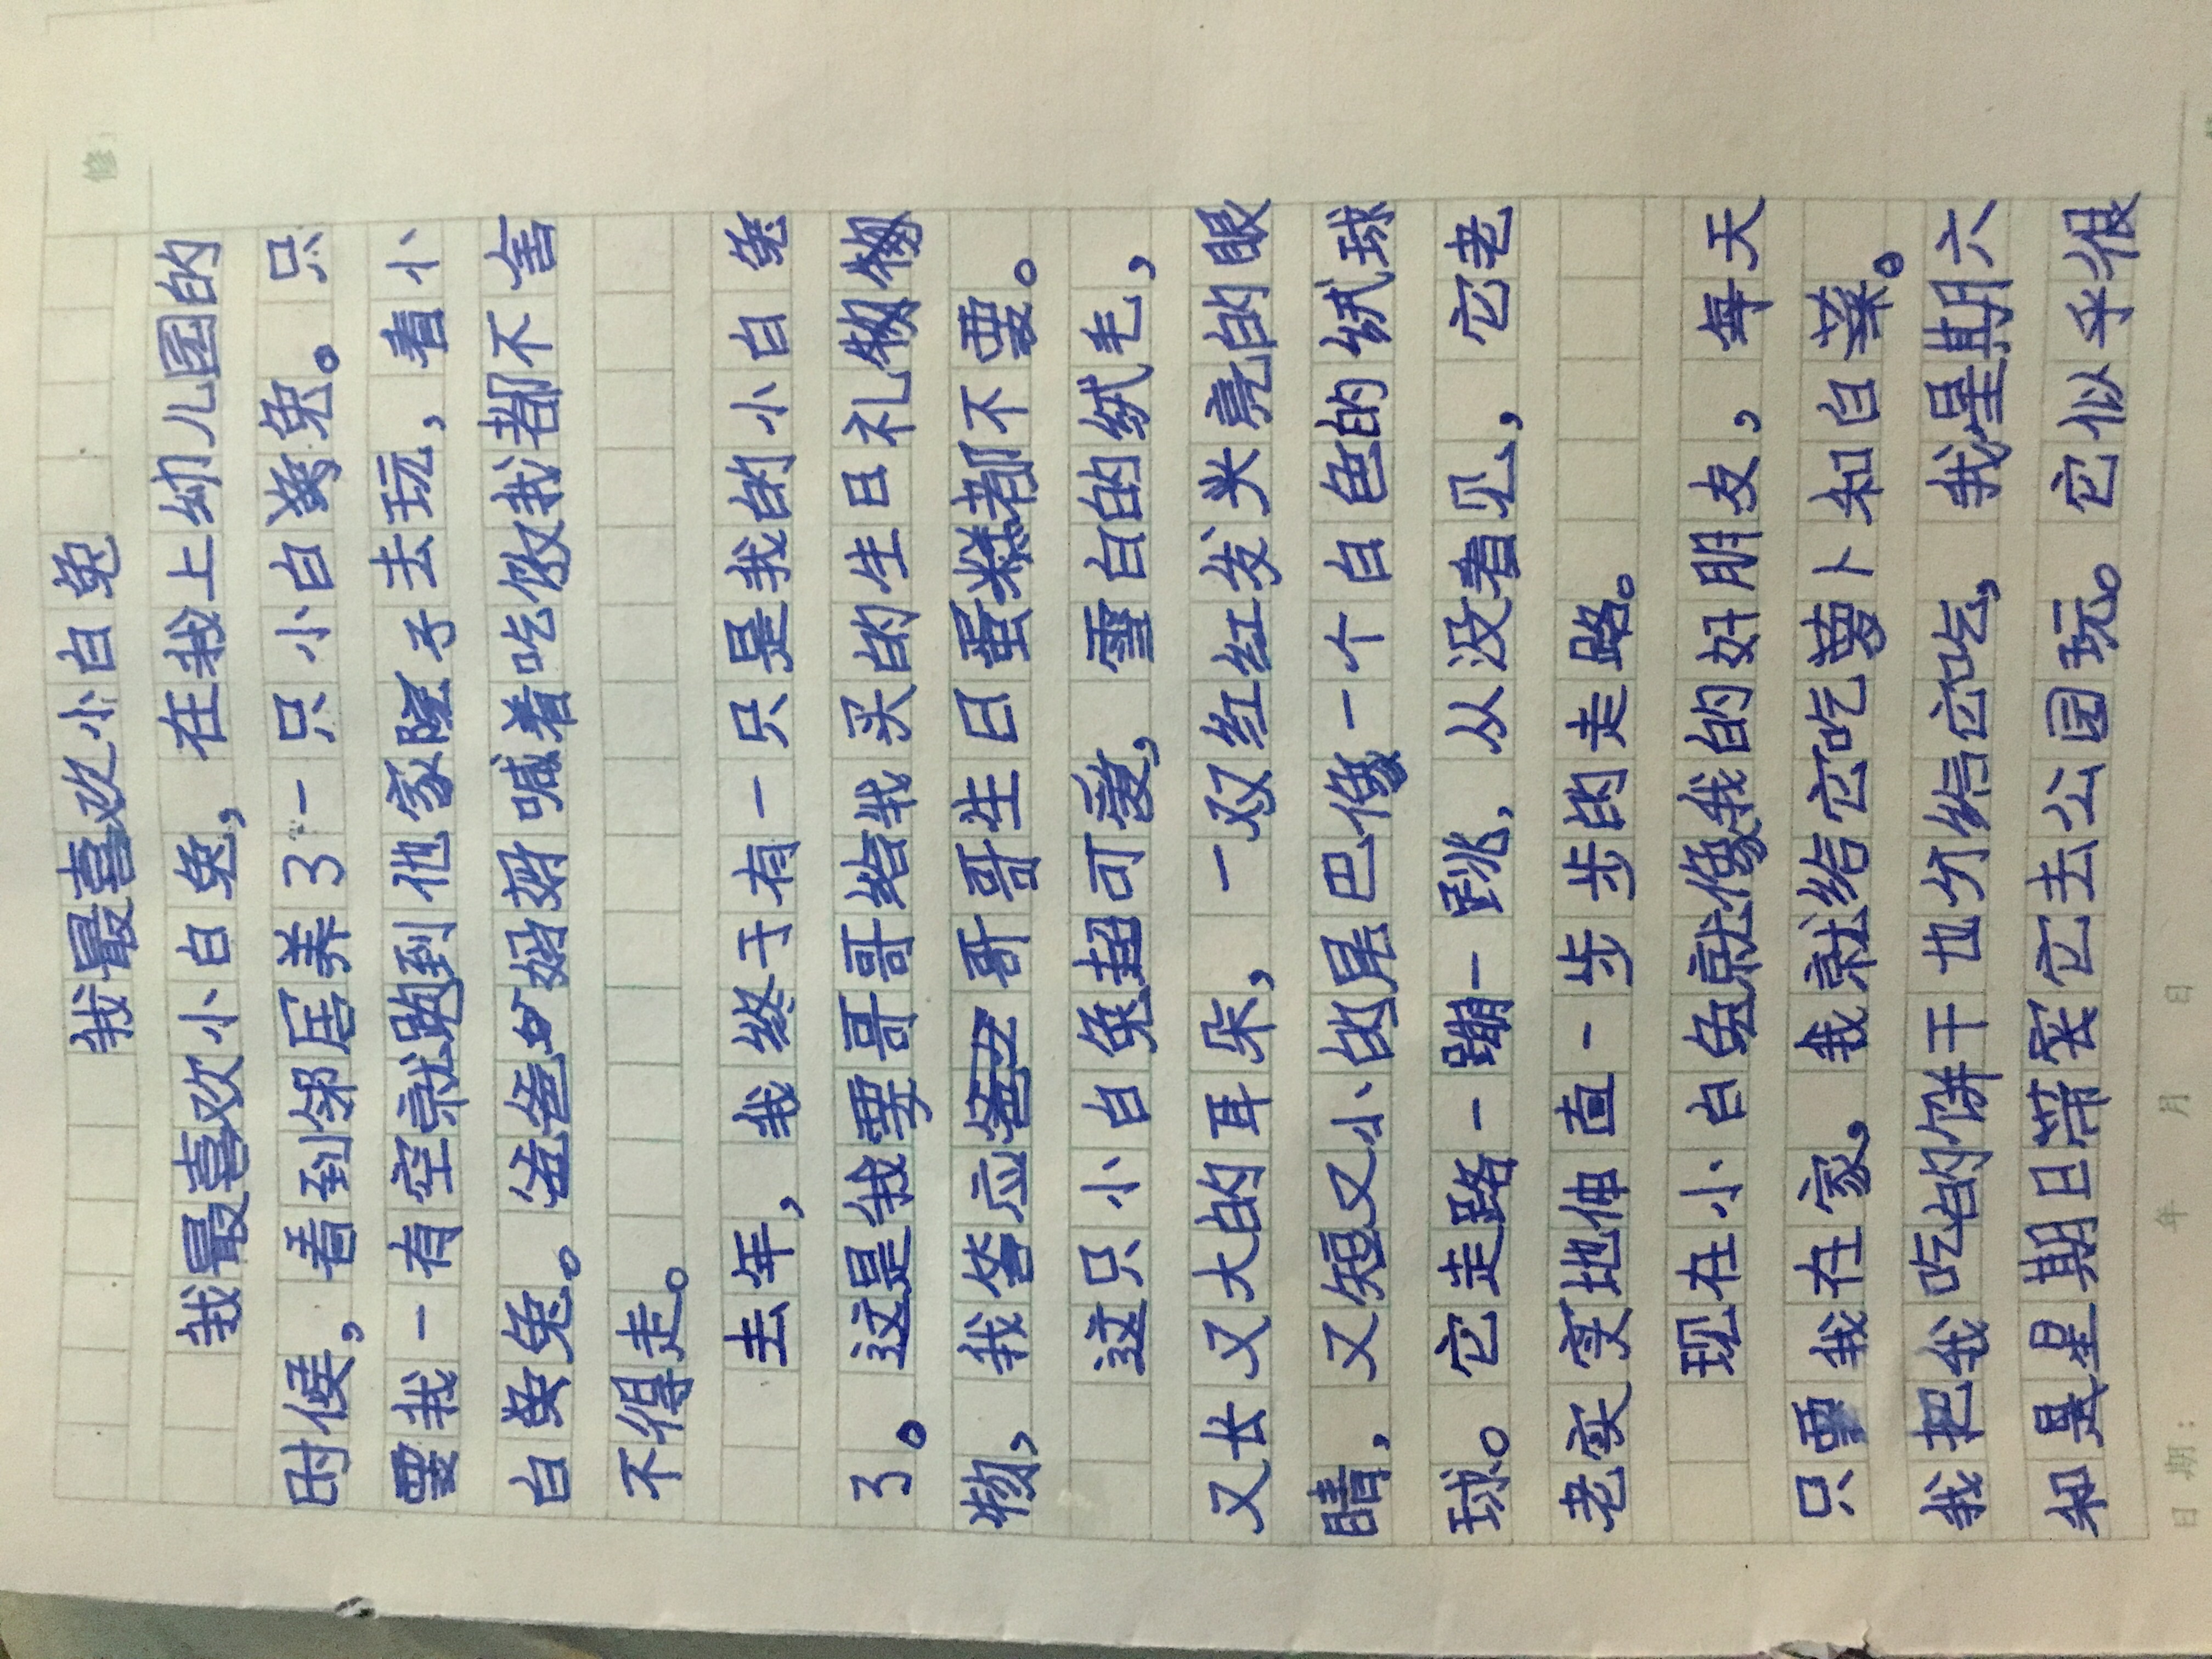 修
我最喜欢小白兔
我最喜欢小白兔，在我上幼儿园的
时候，看到邻居养了一只小白兔。只
要我一有空就跑到他家院子去玩，看小
白兔。爸爸妈妈喊着吃饭我都不舍
不得走。
去年，我终于有一只是我的小白兔
了。这是我要哥哥给我买的生日礼物
物，我答应哥哥生日蛋糕都不要。
这只小白兔超可爱，雪白的绒毛，
又长又大的耳朵，一双红红发光亮的眼
睛，又短又小的尾巴像一个白色的绒球
球。它走路一蹦一跳，从没看见，它老
老实实地伸直一步步的走路。
现在小白兔就像我的好朋友，每天
只要我在家，我就给它吃萝卜和白菜。
我把我吃的饼干也分给它吃，我星期六
和是星期日带它去公园玩。它似乎很
日期： 年 月 日